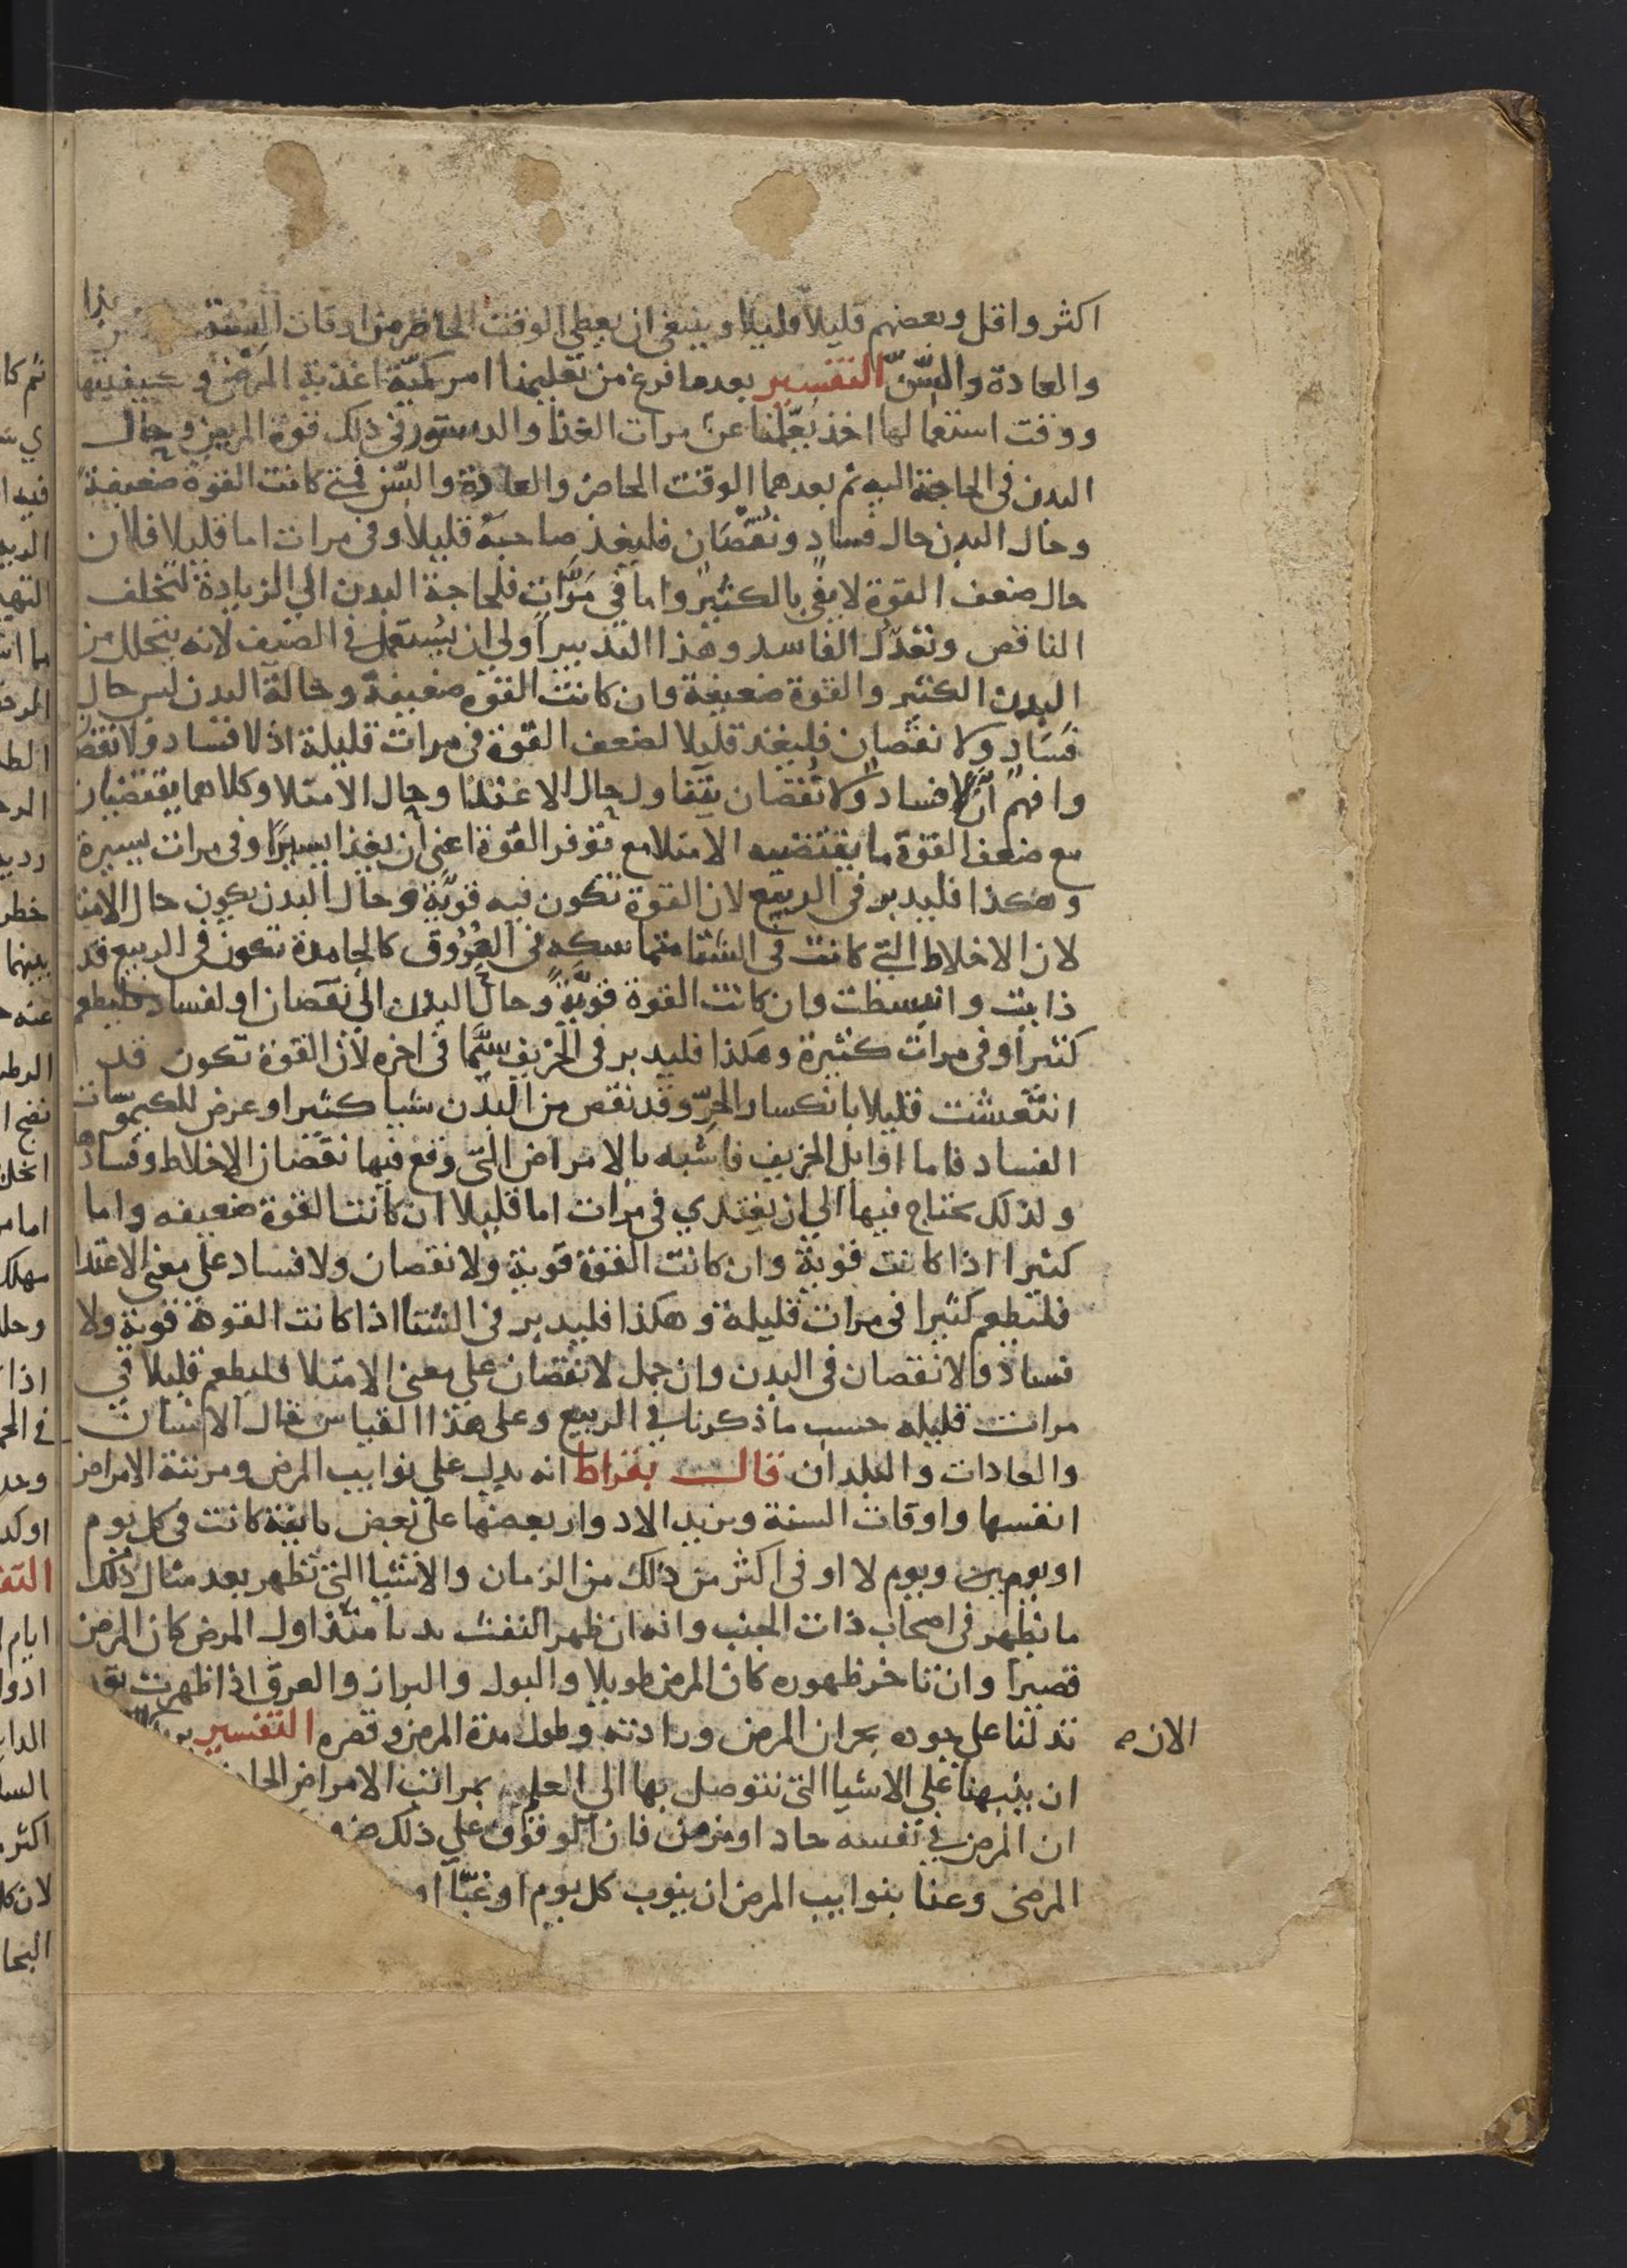 اكثر واقل وبعضهم قليلا قليلا وينبغي ان يعطي الوقت الحاضر من اوقات السنة
والعادة والسّنّ التفسير بعدما فرغ من تعليمنا امر كميّة اغذية المرضى وكيفيتها
ووقت استعمالها اخذ يُعلّمنا عن مرات الغذا والدستور في ذلك قوة المريض وحال
البدن في الحاجة اليه ثم بعدهما الوقت الحاضر والعادة والسّن فمتى كانت القوة ضعيفةً
وحال البدن حال فساد ونقصان فليغذ صاحبه قليلاً وفي مرات اما قليلا فلان
حال ضعف القوة لا يفي بالكثير واما في مرّات فلحاجة البدن الي الزيادة لتخلف
الناقص وتعدل الفاسد وهذا التدبير اولى ان يُستعمل في الصيف لانه يتحلل من
البدن الكثير والقوة ضعيفة وان كانت القوة ضعيفة وحالة البدن ليس حال
فساد ولا نقصان فليغذ قليلا لضعف القوة في مرات قليلة اذ لا فساد ولا نقص
وافهم انّ لا فساد ولا نقصان يتناول حال الاغتذا وحال الامتلا وكلاهما يقتضيان
مع ضعف القوة ما يقتضيه الامتلا مع توفر القوة اعني ان يغذا يسيرًا وفي مرات يسيرة
وهكذا فليدبر في الربيع لان القوة تكون فيه قويّة وحال البدن يكون حال الامتلا
لان الاخلاط التي كانت في الشتا متماسكه في العُرُوق كالجامدة تكون في الربيع قد
ذابت وانبسطت وان كانت القوة قويّةً وحال البدن الى نقصان او لفساد فليطعم
كثيراً وفي مرات كثيرة وهكذا فليدبر في الخريف سيّما في اخره لان القوة تكون قد
انتعشت قليلا بانكسار الحرّ وقد نقص من البدن شيا كثيرا وعرض للكيموسات
الفساد فاما اوايل الخريف فاشبه بالامراض التي وقع فيها نقصان الاخلاط وفسادها
ولذلك يحتاج فيها الي ان يغتدي في مرات اما قليلا ان كانت القوة ضعيفه واما
كثيرا اذا كانت قوية وان كانت القوة قوية ولا نقصان ولا فساد على معنى الاغتدا
فليطعم كثيرا في مرات قليلة وهكذا فليدبر في الشتا اذا كانت القوة قوية ولا
فساد ولا نقصان في البدن وان حمل لا نقصان علي معنى الامتلا فليطعم قليلا في
مرات قليله حسب ما ذكرنا في الربيع وعلى هذا القياس حال الاسنان
والعادات والبلدان قال بقراط انه يدل علي نوايب المرض ومرتبة الامراض
انفسها واوقات السنة وتزيد الادوار بعضها على بعض نايبة كانت في كل يوم
او يوم ويوم لا او في اكثر من ذلك من الزمان والاشيا التي تظهر بعد مثال ذلك
ما يظهر في اصحاب ذات الجنب وانه ان ظهر النفث بديا منذ اول المرض كان المرض
قصيرا وان تاخر ظهوره كان المرض طويلا والبول والبراز والعرق اذا ظهرت بعد
تدلنا على جوده بحران المرض ورداته وطول مدة المرض وقصره التفسير
الان
ان ينبهنا على الاشيا التي نتوصل بها الي العلم بمراتب الامراض الحاد
ان المرض في نفسه حاد او مزمن فان الوقوف على ذلك
المرضى وعنا بنوايب المرض ان ينوب كل يوم او غبّا او